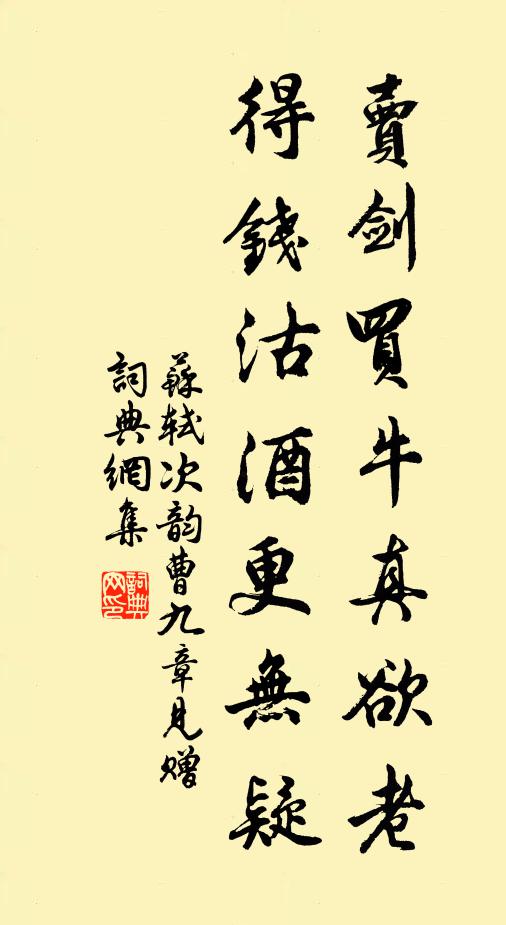 賣劍買牛真欲老
得錢沽酒更無疑
蘇軾次韵曹九章見贈
詞典網集
詞典網印